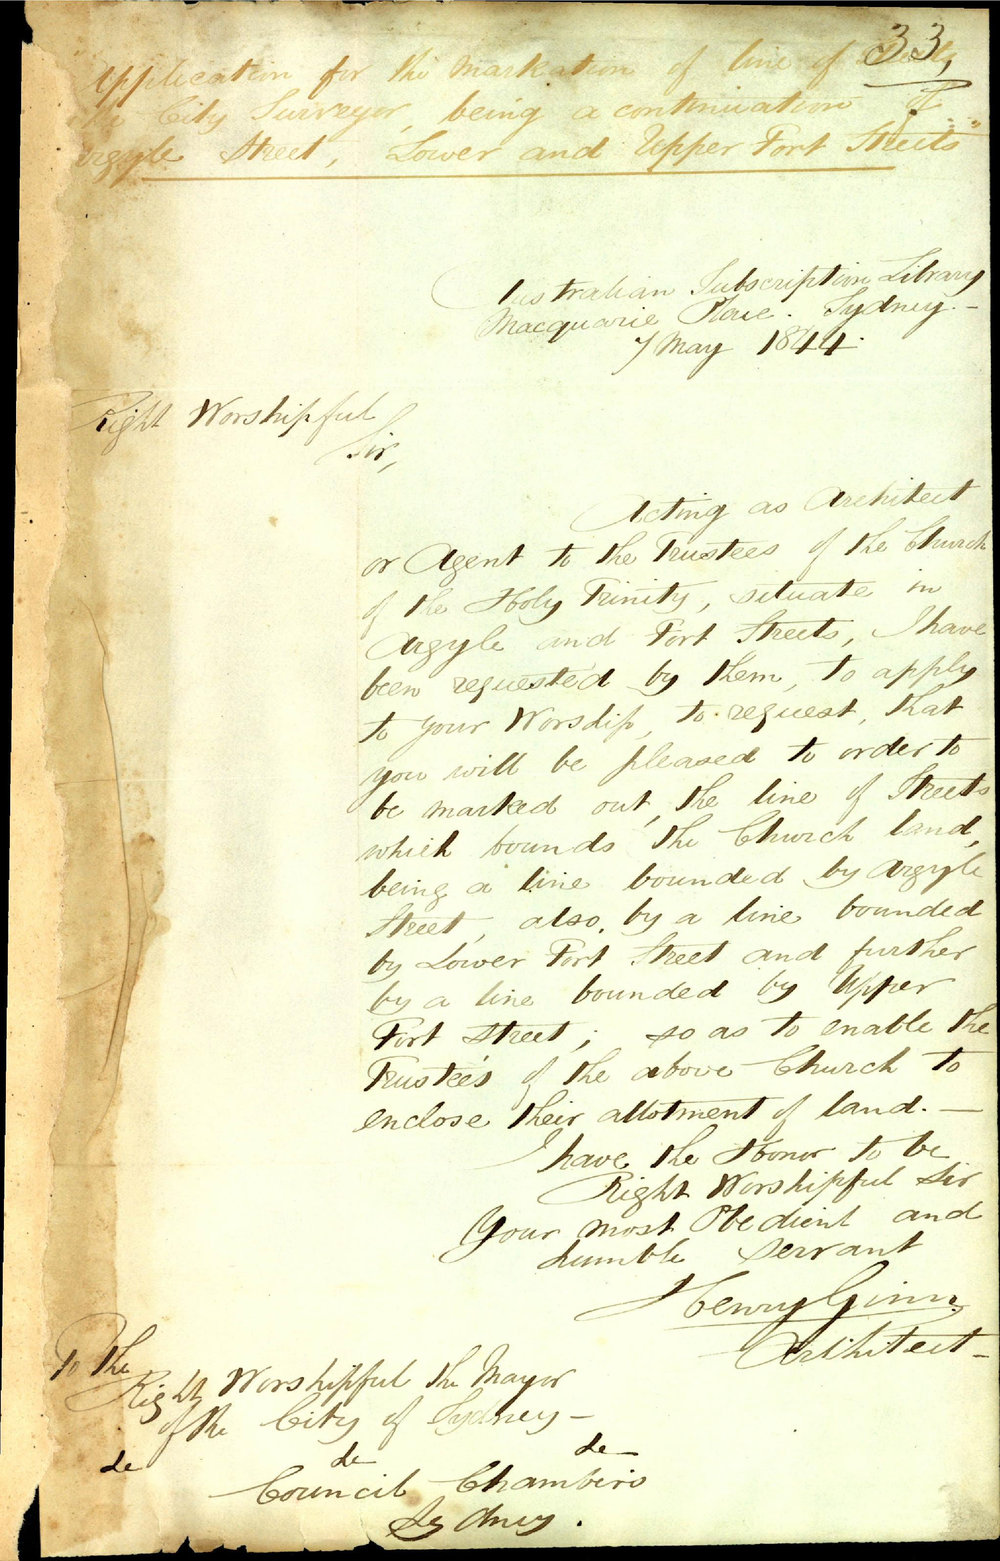 33,
Application for the markation of line of
the City Surveyor, being a continuation of
Argyle Street, Lower and Upper Fort Streets
Australian Subscription Library
Macquarie Place. Sydney.-
7 May 1844.
Right Worshipful
Sir,
Acting as Architect
or Agent to the Trustees of the Church
of the Holy Trinity, situate in
Argyle and Fort Streets, I have
been requested by them, to apply
to your Worship, to request, that
you will be pleased to order to
be marked out, the line of Streets
which bounds the Church land,
being a line bounded by Argyle
Street, also, by a line bounded
by Lower Fort Street and further
by a line bounded by Upper
Fort Street; so as to enable the
Trustees of the above Church to
enclose their allotment of land. —
I have the Honor to be
Right Worshipful Sir
Your most Obedient and
humble servant
Henry Ginn,
Architect -
To the
Right Worshipful the Mayor
of the City of Sydney -
de de de
Council Chambers
Sydney.